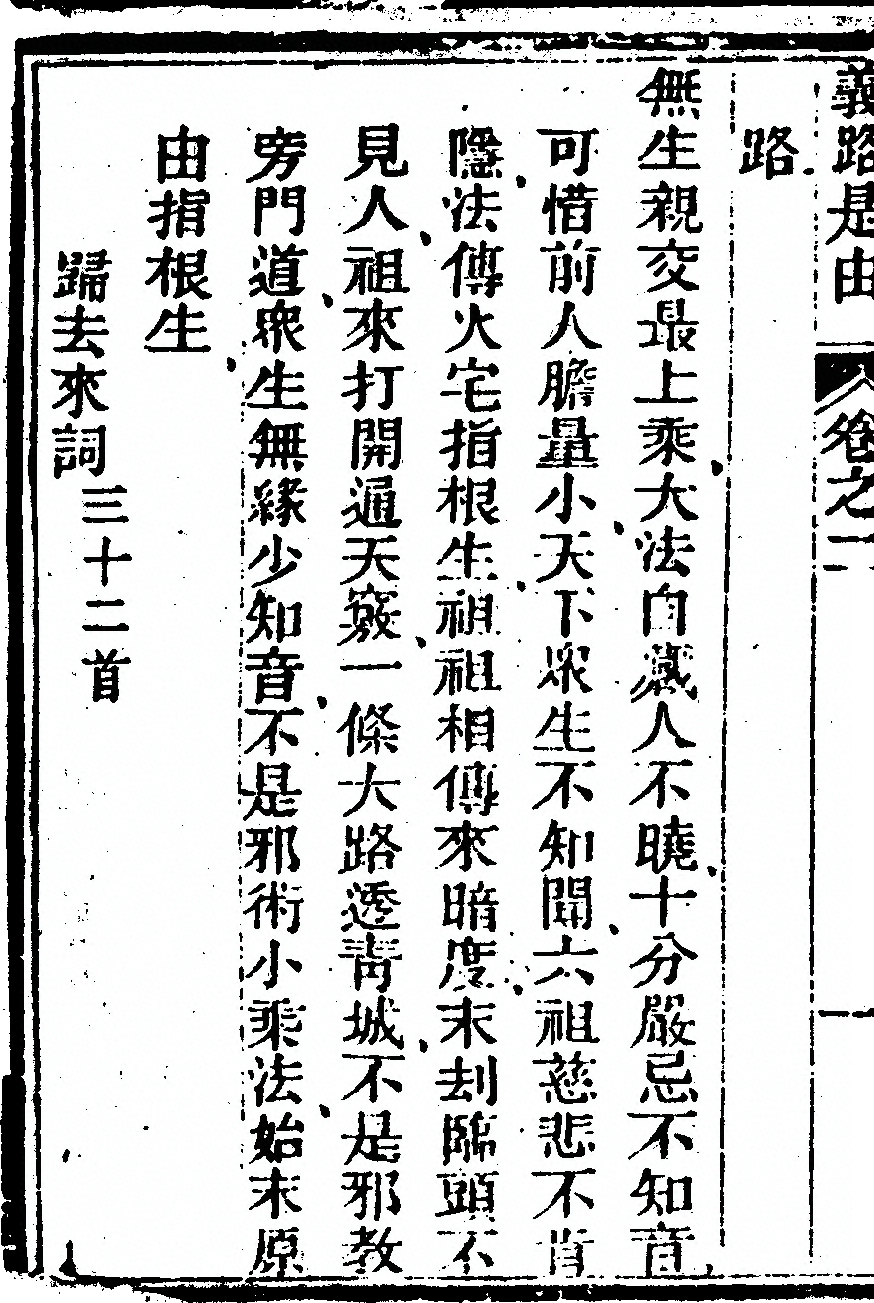 義路是由 卷之二
路
無生親交最上乘大法自藏人不曉十分嚴忌不知音
可惜前人膽量小天下眾生不知聞六祖慈悲不肯
隱法傳火宅指根生祖祖相傳來暗度末刦臨頭不
見人祖來打開通天竅一條大路透靑城不是邪教
旁門道眾生無緣少知音不是邪術小乘法始末原
由指根生
歸去來詞
三十二首